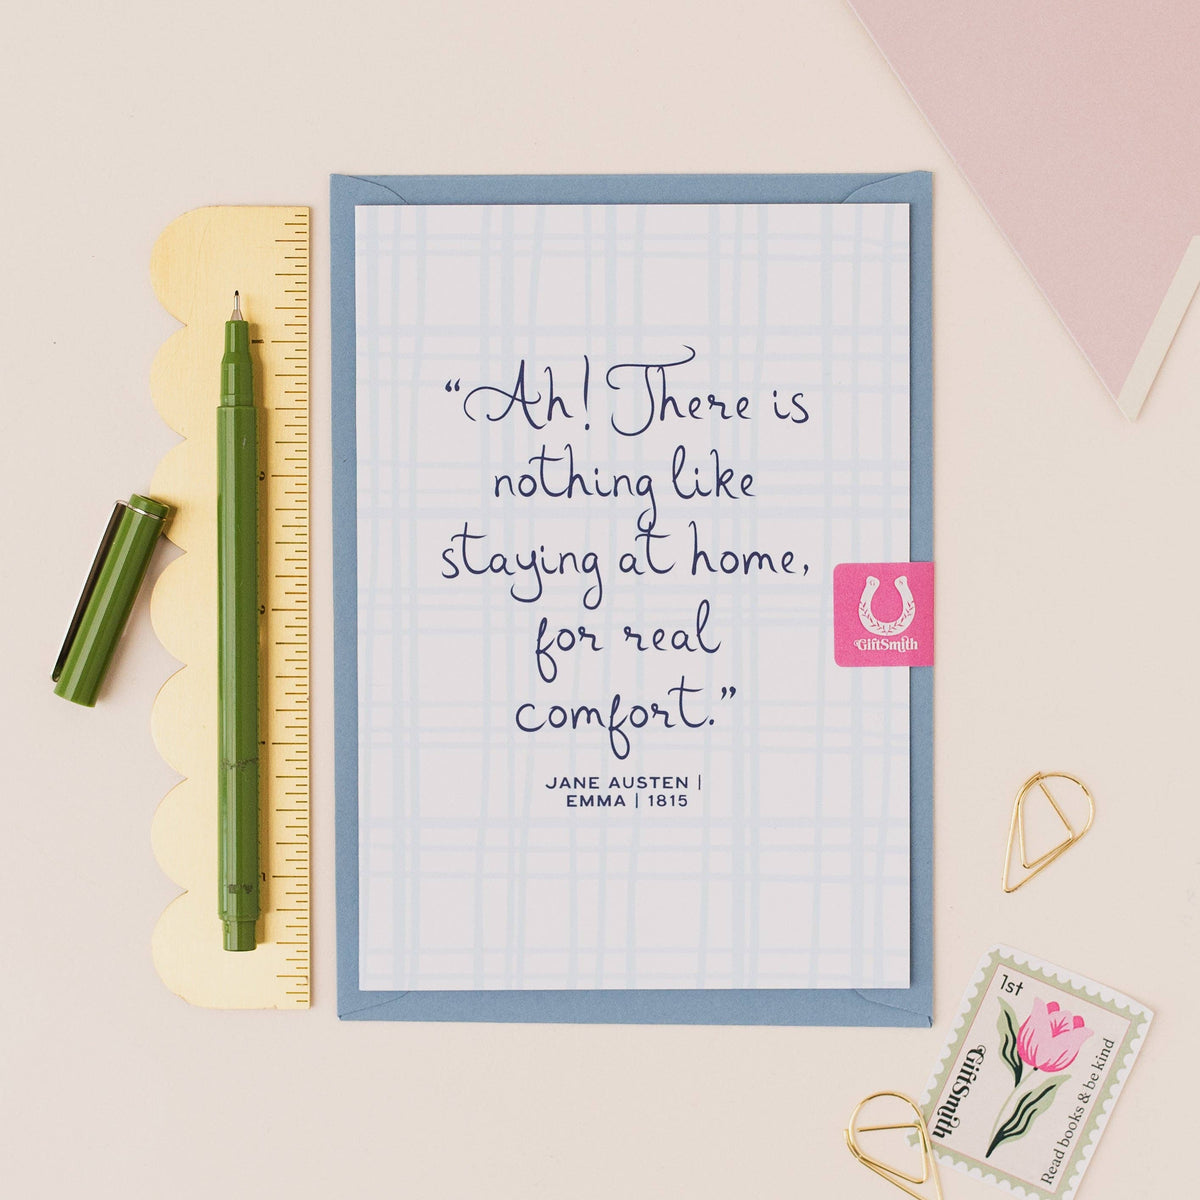 “Ah! There is
nothing like
staying at home,
for real
comfort.”
JANE AUSTEN |
EMMA | 1815
G S
GiftSmith
1st
GiftSmith
Read books & be kind